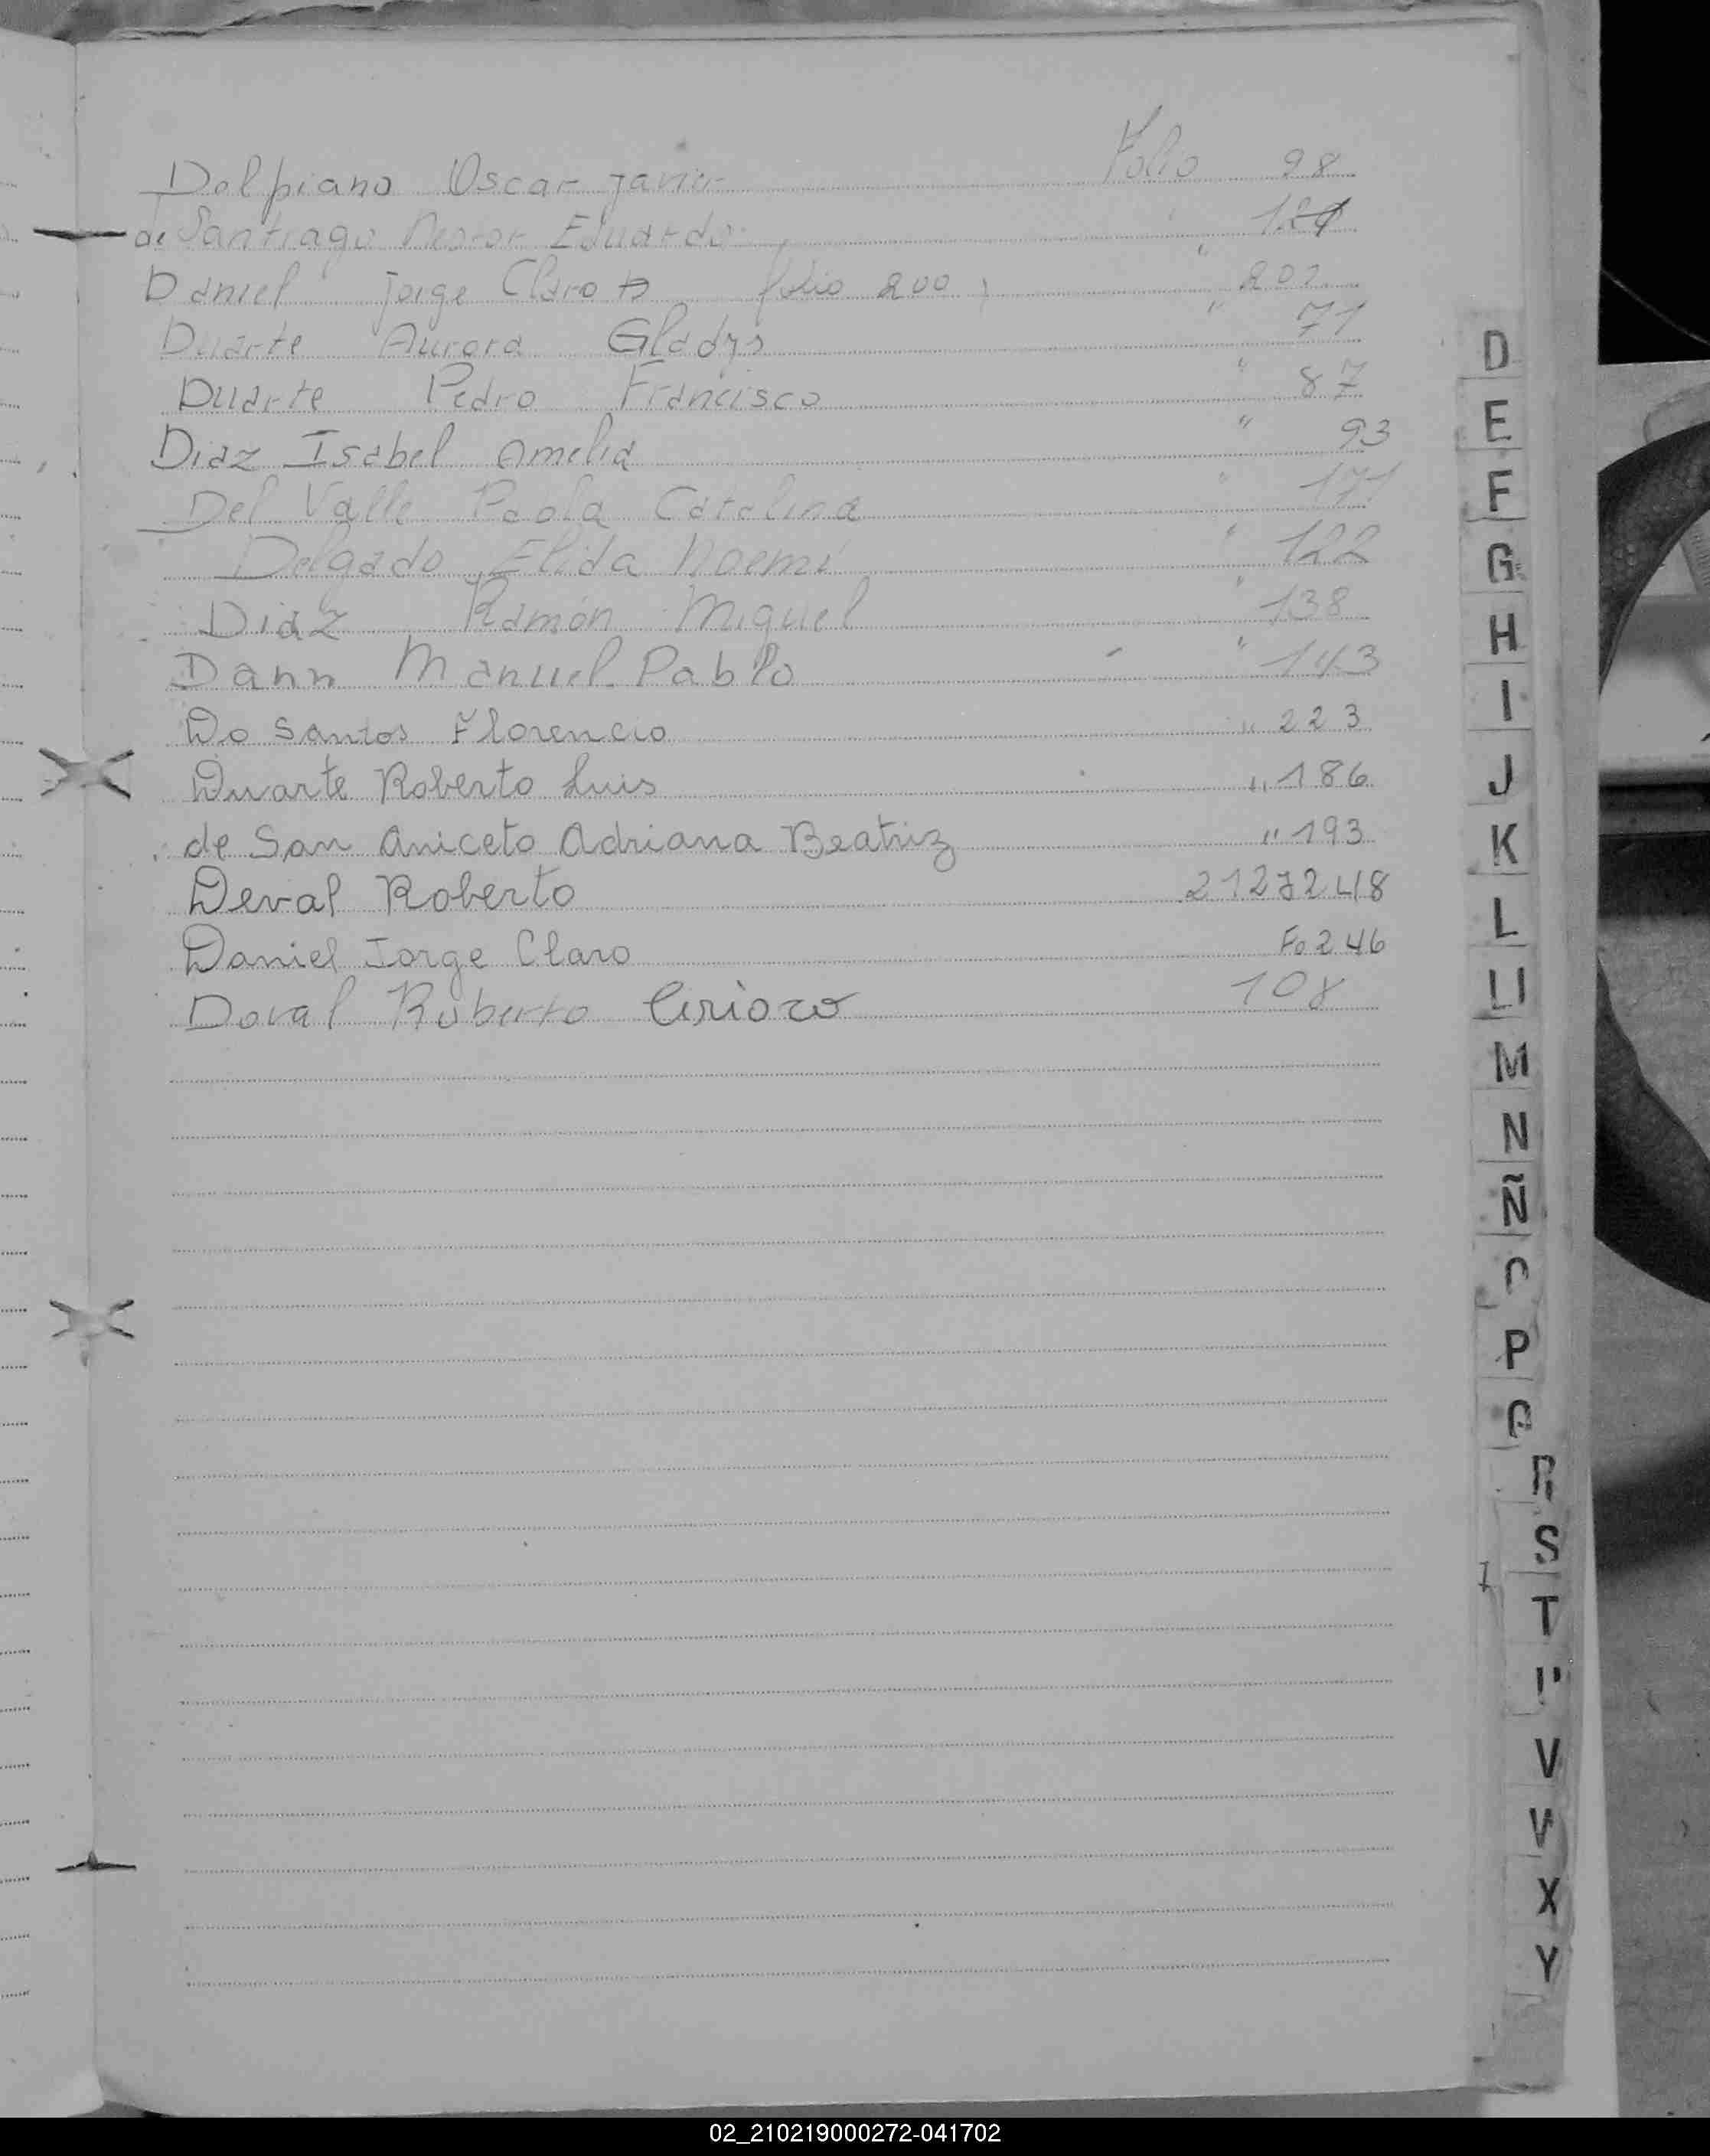 Delpiano Oscar Javier Folio 98
de Santiago Nestor Eduardo 121
Daniel Jorge Claro folio 200 " 201
Duarte Aurora Gladys " 71
Duarte Pedro Francisco " 87
Diaz Isabel Amelia " 93
Del Valle Paola Catalina " 171
Delgado Elida Noemi " 122
Diaz Ramón Miguel " 138
Dann Manuel Pablo " 143
Do Santos Florencio " 223
Duarte Roberto Luis " 186
de San Aniceto Adriana Beatriz " 193
Deval Roberto
Daniel Jorge Claro Fo 246
Doval Roberto 108
D
E
F
G
H
I
J
K
L
Ll
M
N
Ñ
O
P
Q
R
S
T
U
V
W
X
Y
02_210219000272-041702